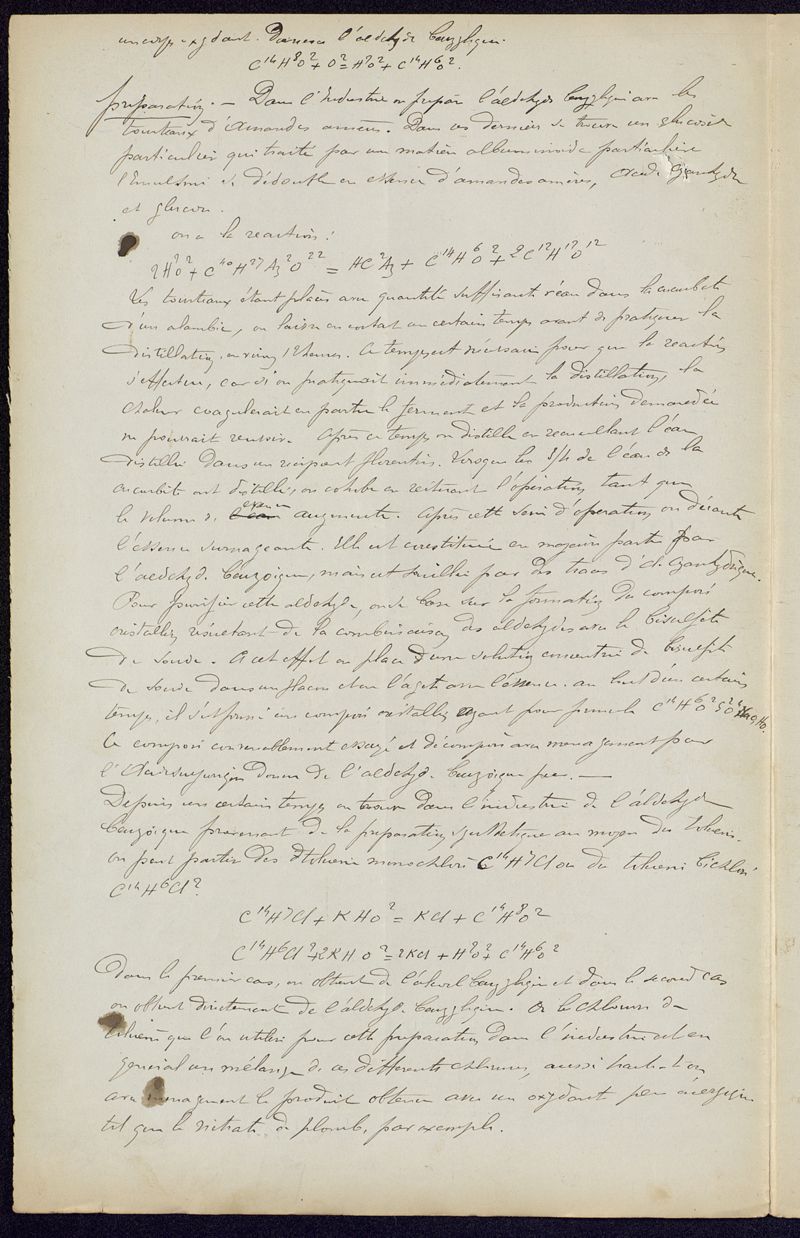 un corps oxydant. Donnera l'aldehyde benzylique.
C¹⁴H⁸O² + O² = H²O² + C¹⁴H⁶O².
préparation. — Dans l'Industrie on prépare l'aldehyde benzylique avec les
tourteaux d'Amandes amères. Dans ces derniers se trouve un glucoside
particulier qui traité par une matière albuminoïde particulière
l'Emulsine se dédouble en essence d'amandes amères, Acide Cyanhydr
et glucose.
on a la reaction :
2H²O² + C⁴⁰H²⁷AzO²² = HC²Az + C¹⁴H⁶O² + 2C¹²H¹²O¹²
Les tourteaux étant placés avec quantité suffisante d'eau dans la cucurbite
d'un alambic, on laisse en contact un certain temps avant de pratiquer la
distillation, environ 12 heures. Ce temps est nécessaire pour que la reaction
s'effectue, car si on pratiquait immédiatement la distillation, la
chaleur coagulerait en partie le ferment et la production demandée
ne pourrait réussir. Après ce temps on distille en recueillant l'eau
distillée dans un récipient florentin. Lorsque les 3/4 de l'eau de la
cucurbite ont distillé, on cohobe en réitérant l'opération tant que
le volume de l'eau essence augmente. Après cette série d'opération on décante
l'essence surnageante. Elle est constituée en majeure partie par
l'aldehyde benzoique, mais est souillée par des traces d'Ac. Cyanhydrique.
Pour purifier cette aldehyde, on se base sur la formation du composé
cristallin résultant de la combinaison des aldehydes avec le bisulfite
de soude. A cet effet on place d'une solution concentrée de bisulfite
de soude dans un flacon et on l'agite avec l'essence. au bout d'un certain
temps, il s'est formé un composé cristallin ayant pour formule C¹⁴H⁶O² S²O⁴ NaO HO.
Ce composé convenablement essoré et décomposé avec menagement par
l'Acide sulfurique donne de l'aldehyde benzoique pure. —
Depuis un certain temps on trouve dans l'industrie de l'aldehyde
benzoique provenant de la preparation synthetique au moyen du toluene.
on peut partir des toluene monochloré C¹⁴H⁷Cl ou du toluene bichloré
C¹⁴H⁶Cl².
C¹⁴H⁷Cl + KHO² = KCl + C¹⁴H⁸O²
C¹⁴H⁶Cl² + 2KHO² = 2KCl + H²O² + C¹⁴H⁶O²
Dans le premier cas, on obtient de l'alcool benzylique et dans le second cas
on obtient directement de l'aldehyde benzylique. Or le chlorure de
toluene que l'on utilise pour cette preparation dans l'industrie est en
general un mélange de ces différents chlorures, aussi traite-t-on
avec menagement le produit obtenu avec un oxydant peu énergique
tel que le nitrate de plomb, par exemple.